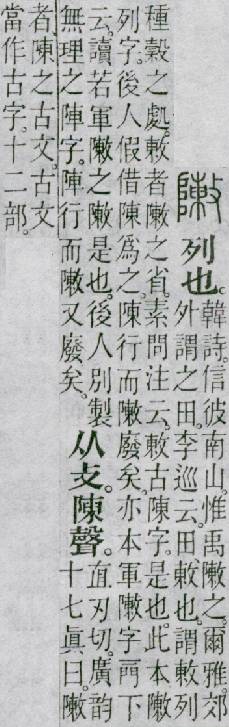 敶列也。
韓詩。信彼南山。惟禹敶之。爾雅。郊
外謂之田。李巡云。田敕也。謂敕列
種穀之處。敕者敶之省。素問注云。敕古陳字。是也。此本敶
列字。後人假借陳爲之。陳行而敶廢矣。亦本軍敶字。下
云。讀若軍敶之敶是也。後人別製
無理之陣字。陣行而敶又廢矣。
从攴。陳聲。
直刃切。廣韵
十七眞曰。敶
者。陳之古文。古文
當作古字。十二部。